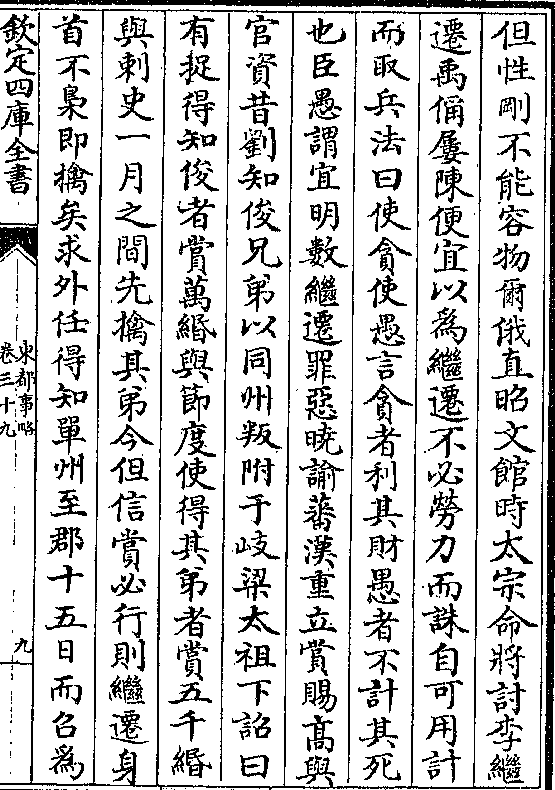 但性剛不能容物爾俄直昭文館時太宗命將討李繼
遷禹偁屢陳便宜以為繼遷不必勞力而誅自可用計
而取兵法曰使貪使愚言貪者利其財愚者不計其死
也臣愚謂宜明數繼遷罪惡曉諭蕃漢重立賞賜髙與
官資昔劉知俊兄弟以同州叛附于岐梁太祖下詔曰
有捉得知俊者賞萬緡與節度使得其弟者賞五千緡
與刺史一月之間先擒其弟今但信賞必行則繼遷身
首不梟即擒矣求外任得知單州至郡十五日而召為
欽定四庫全書
東都事略
卷三十九
九